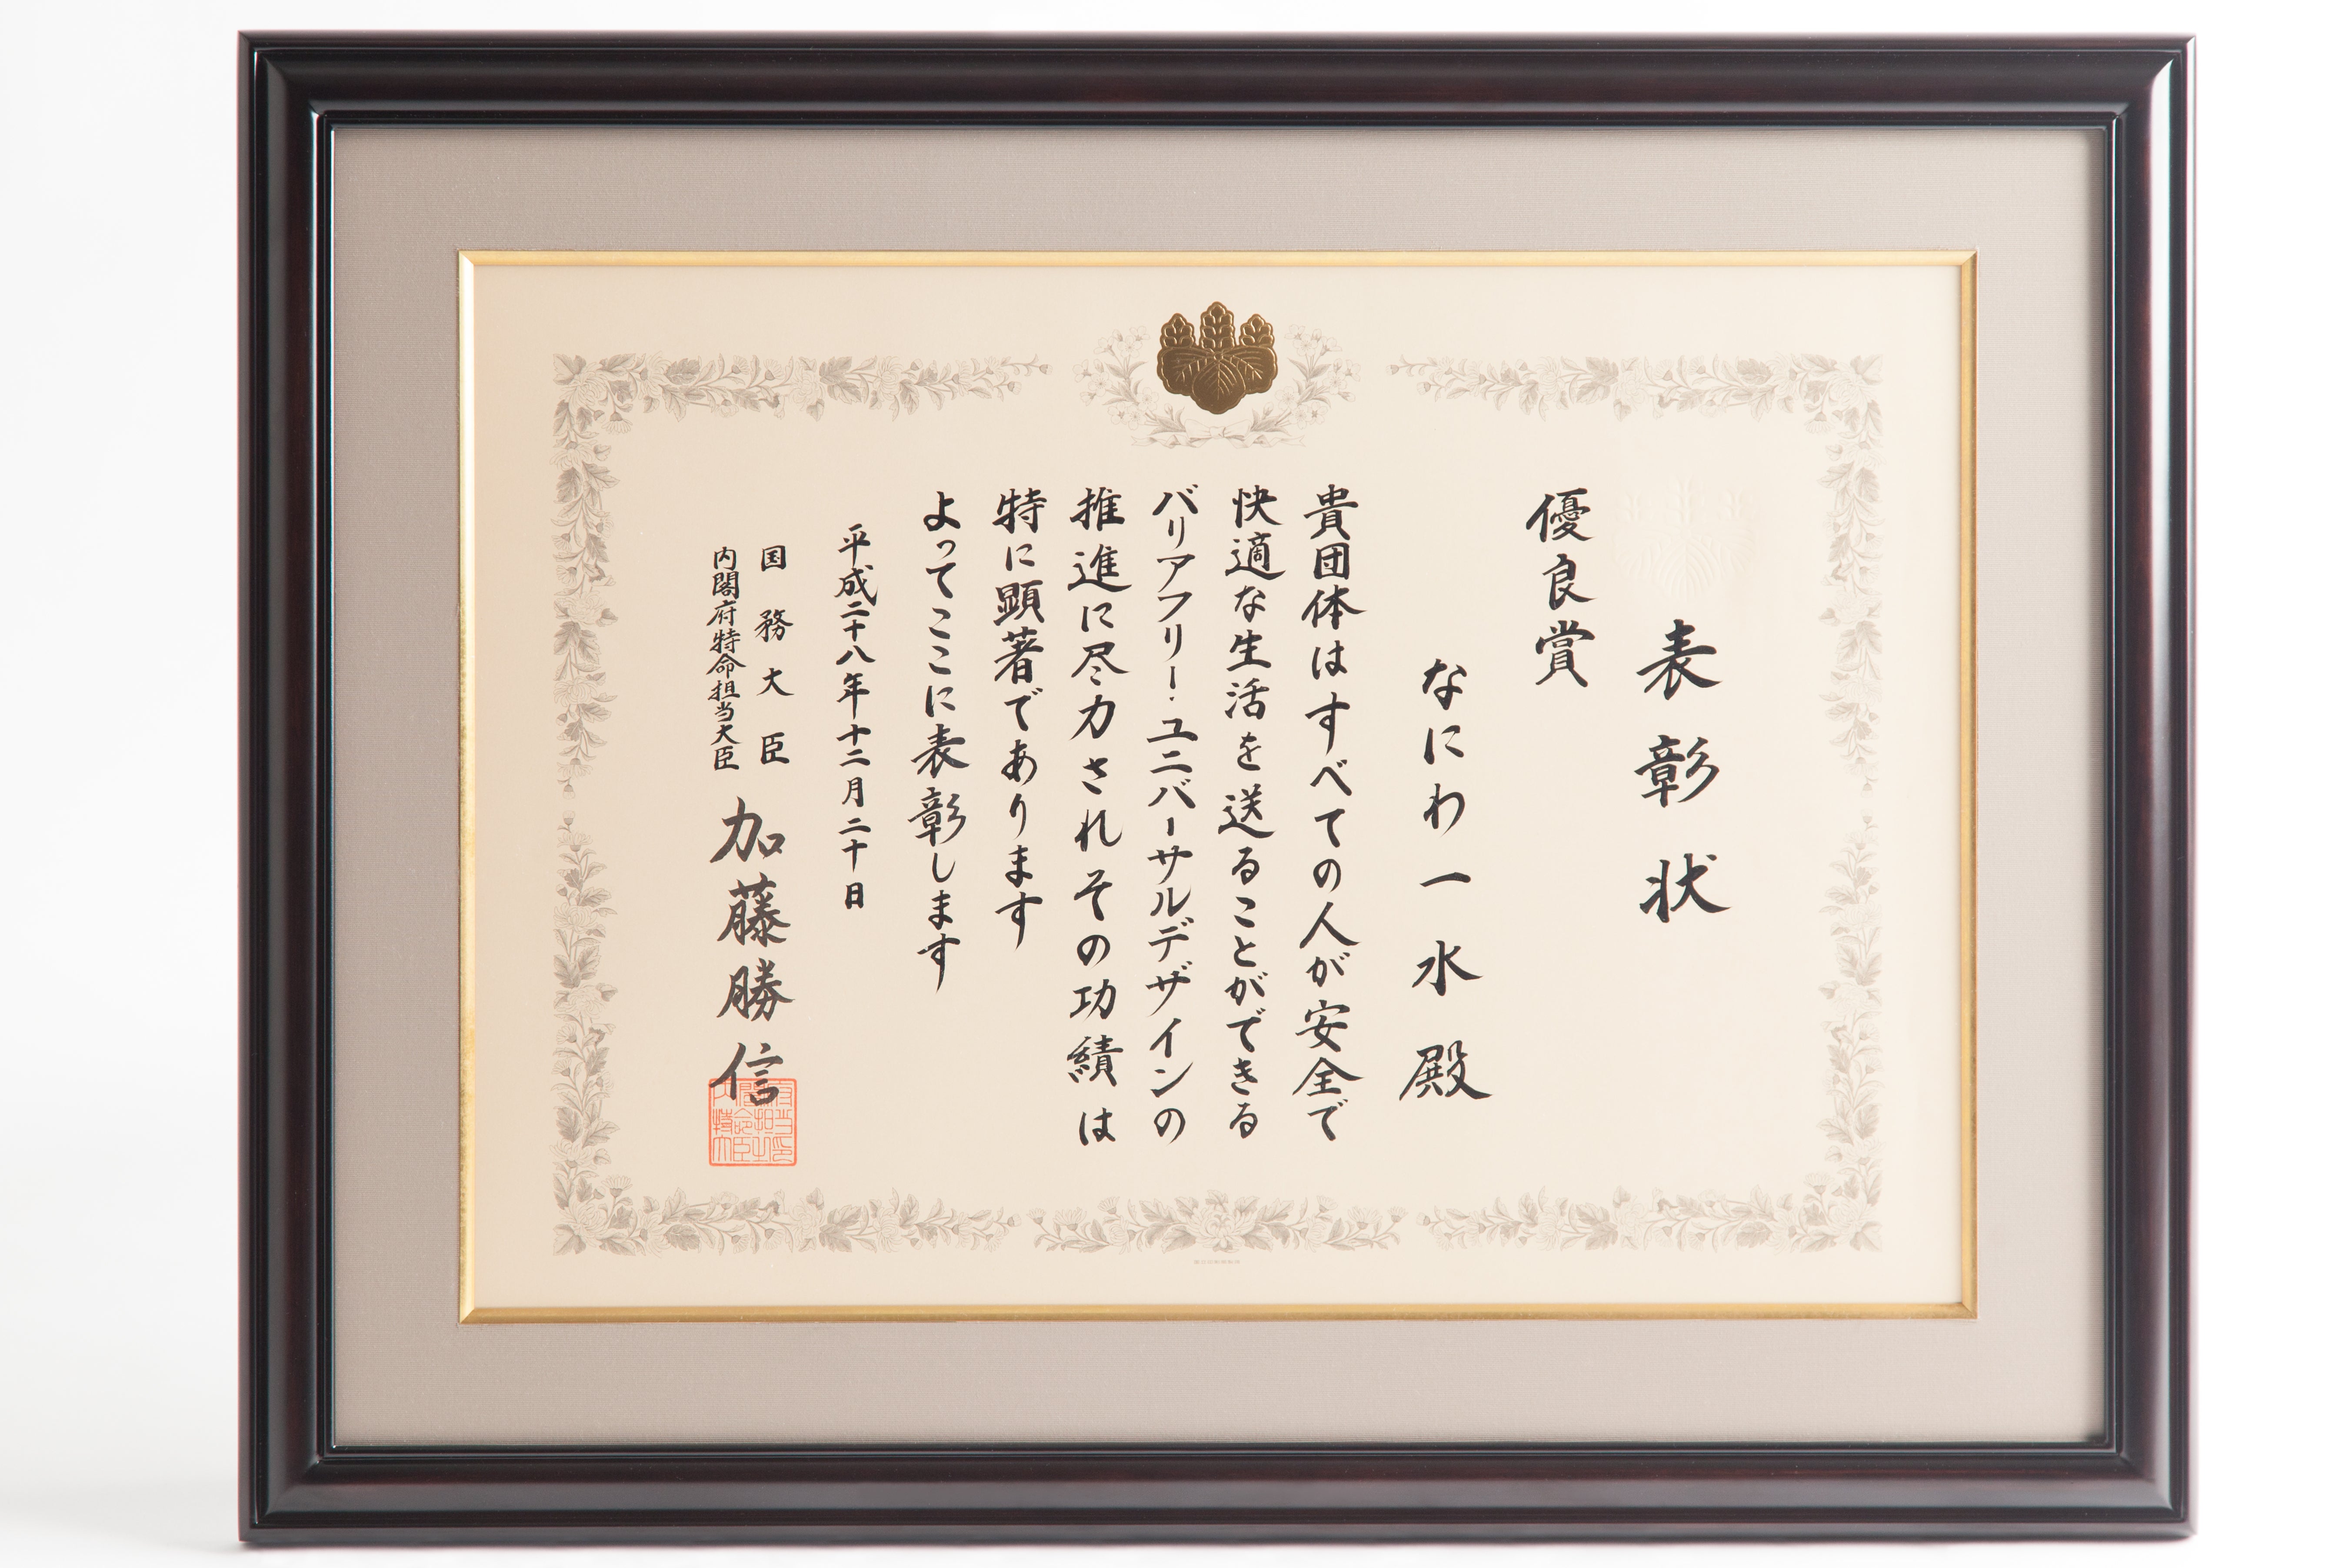 表彰状
優良賞
なにわ一水殿
貴団体はすべての人が安全で
快適な生活を送ることができる
バリアフリー・ユニバーサルデザインの
推進に尽力されその功績は
特に顕著であります
よってここに表彰します
平成二十八年十二月二十日
国務大臣
内閣府特命担当大臣
加藤勝信